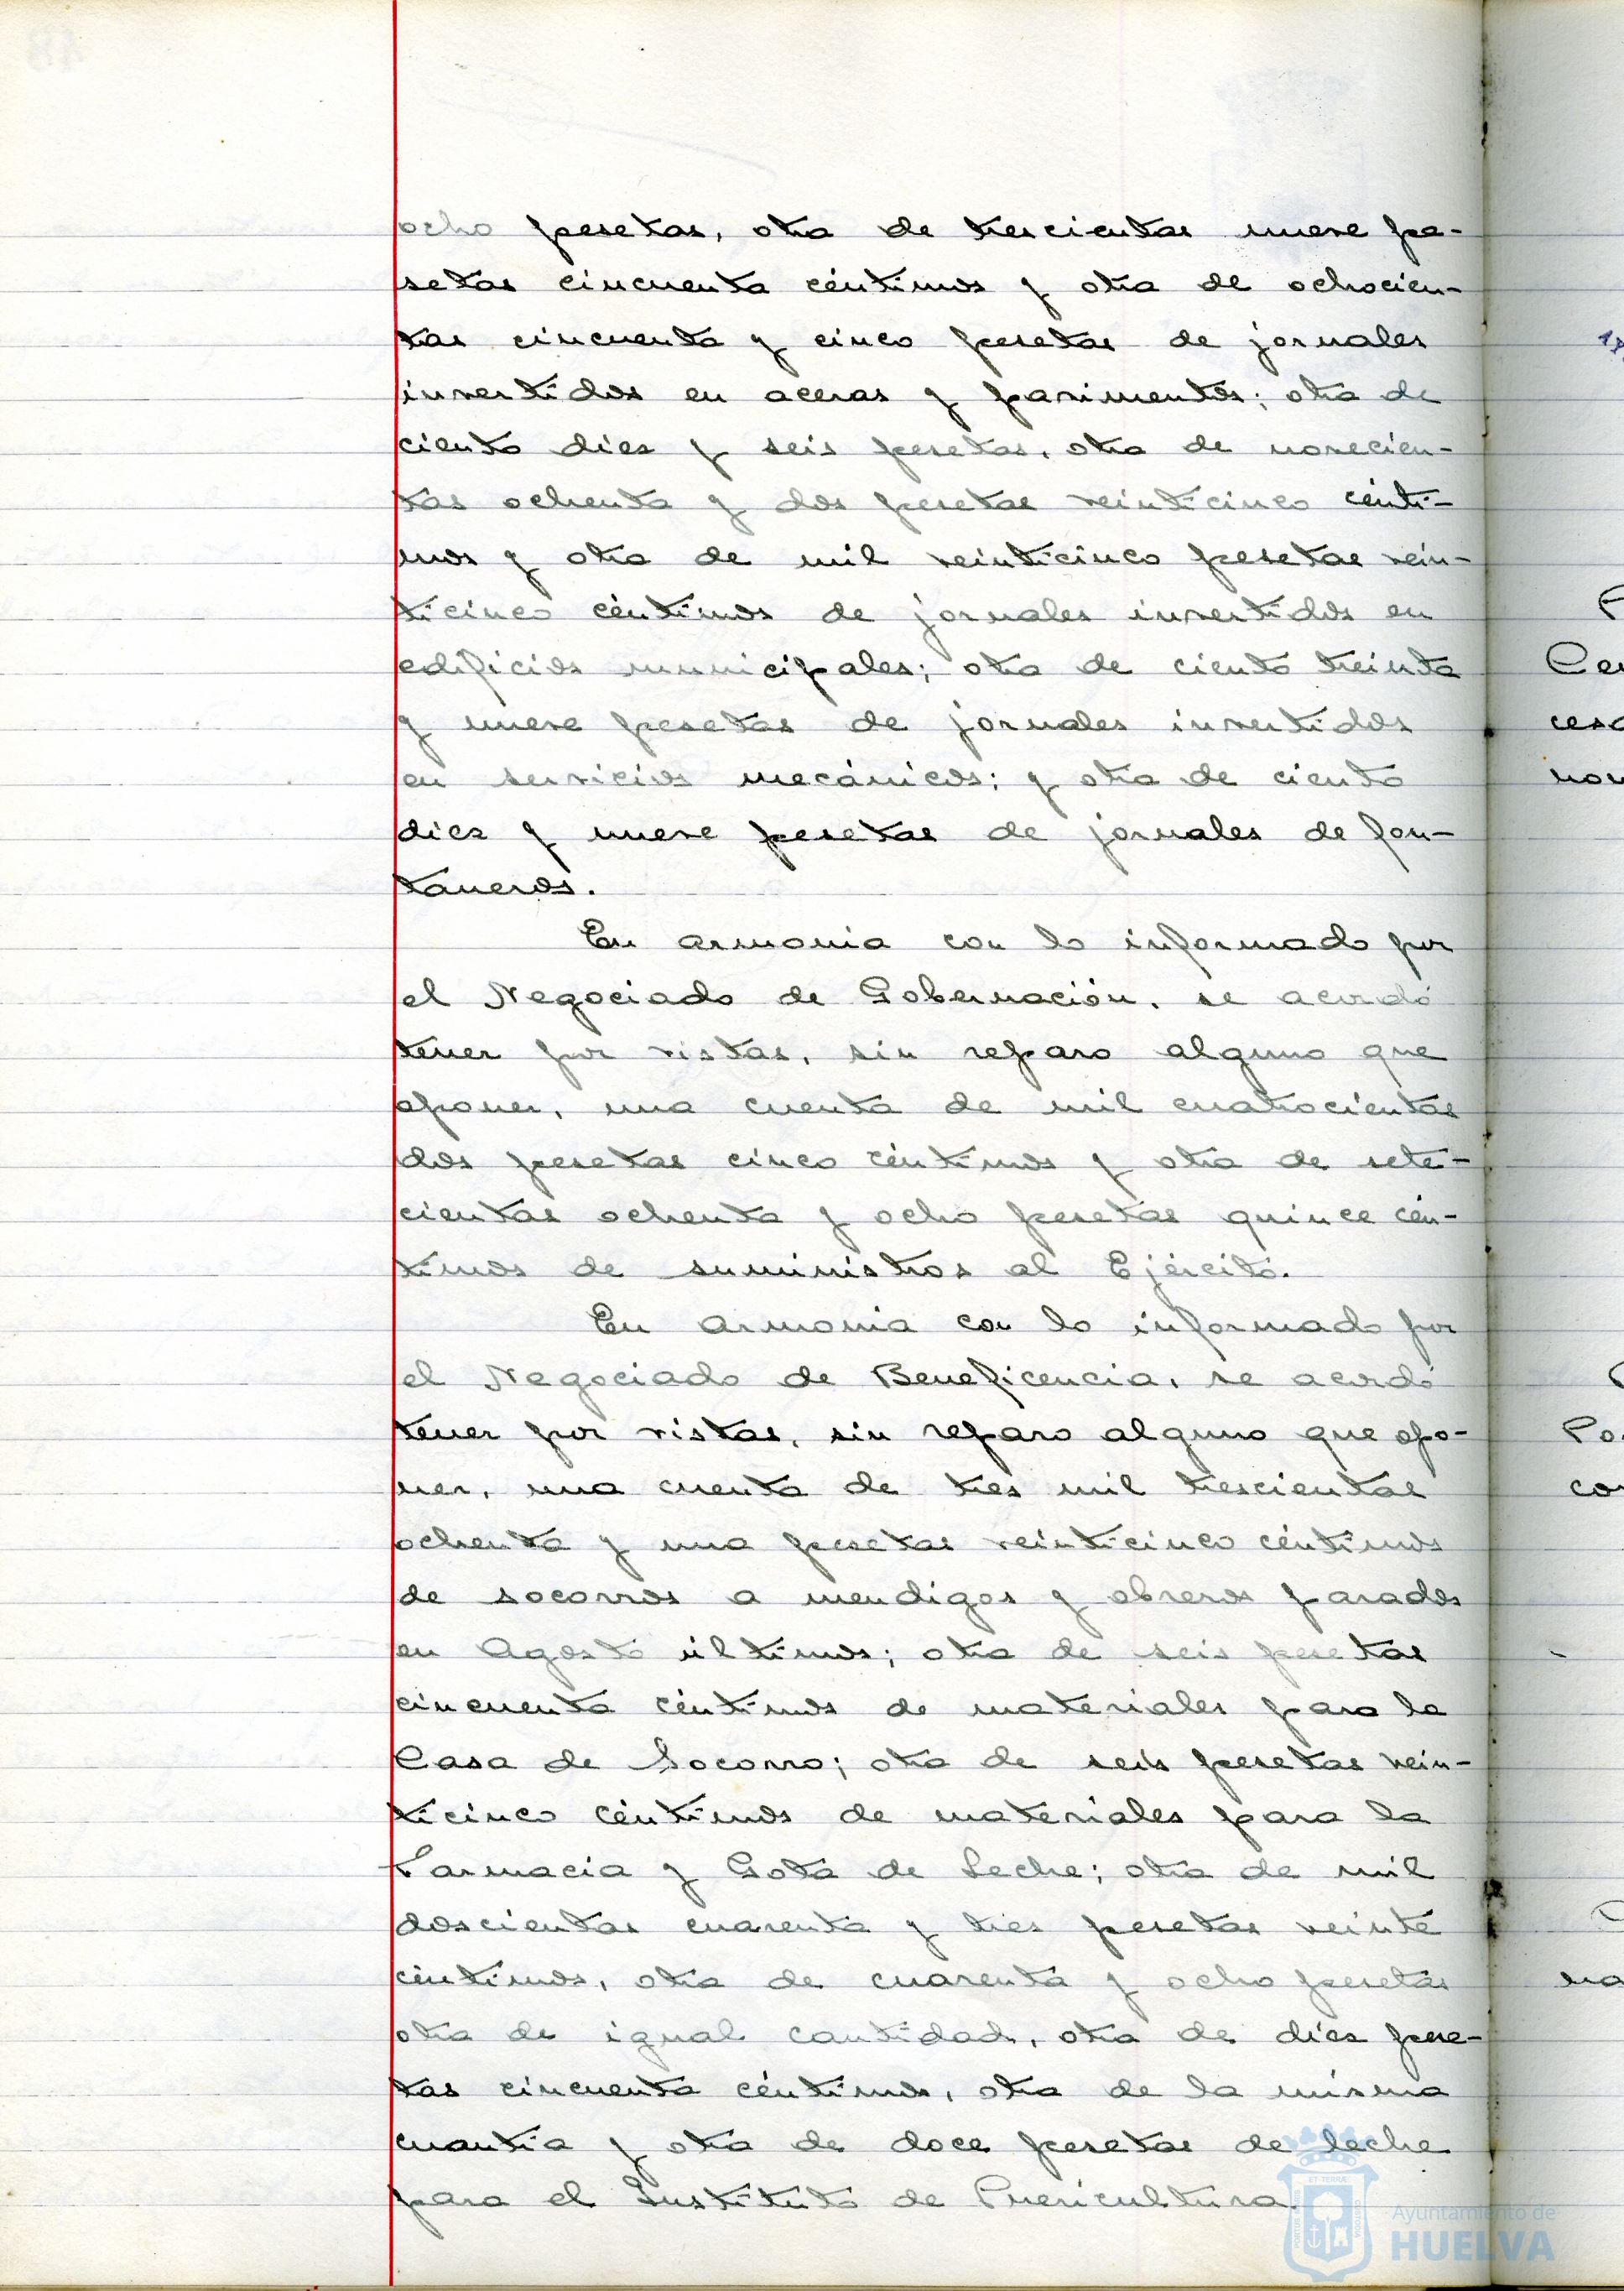 ocho pesetas, otra de trescientas nueve pe-
setas cincuenta céntimos y otra de ochocien-
tas cincuenta y cinco pesetas de jornales
invertidos en aceras y pavimentos; otra de
ciento diez y seis pesetas, otra de novecien-
tas ochenta y dos pesetas veinticinco cénti-
mos y otra de mil veinticinco pesetas vein-
ticinco céntimos de jornales invertidos en
edificios municipales; otra de ciento treinta
y nueve pesetas de jornales invertidos
en servicios mecánicos; y otra de ciento
diez y nueve pesetas de jornales de fon-
taneros.
En armonia con lo informado por
el Negociado de Gobernación, se acordó
tener por vistas, sin reparo alguno que
oponer, una cuenta de mil cuatrocientas
dos pesetas cinco céntimos y otra de sete-
cientas ochenta y ocho pesetas quince cén-
timos de suministros al Ejército.
En armonia con lo informado por
el Negociado de Beneficencia, se acordó
tener por vistas, sin reparo alguno que opo-
ner, una cuenta de tres mil trescientas
ochenta y una pesetas veinticinco céntimos
de socorros a mendigos y obreros parados
en Agosto último; otra de seis pesetas
cincuenta céntimos de materiales para la
Casa de Socorro; otra de seis pesetas vein-
ticinco céntimos de materiales para la
Farmacia y Gota de Leche; otra de mil
doscientas cuarenta y tres pesetas veinte
céntimos, otra de cuarenta y ocho pesetas
otra de igual cantidad, otra de diez pese-
tas cincuenta céntimos, otra de la misma
cuantia y otra de doce pesetas de leche
para el Instituto de Puericultura.
Ayuntamiento de
HUELVA